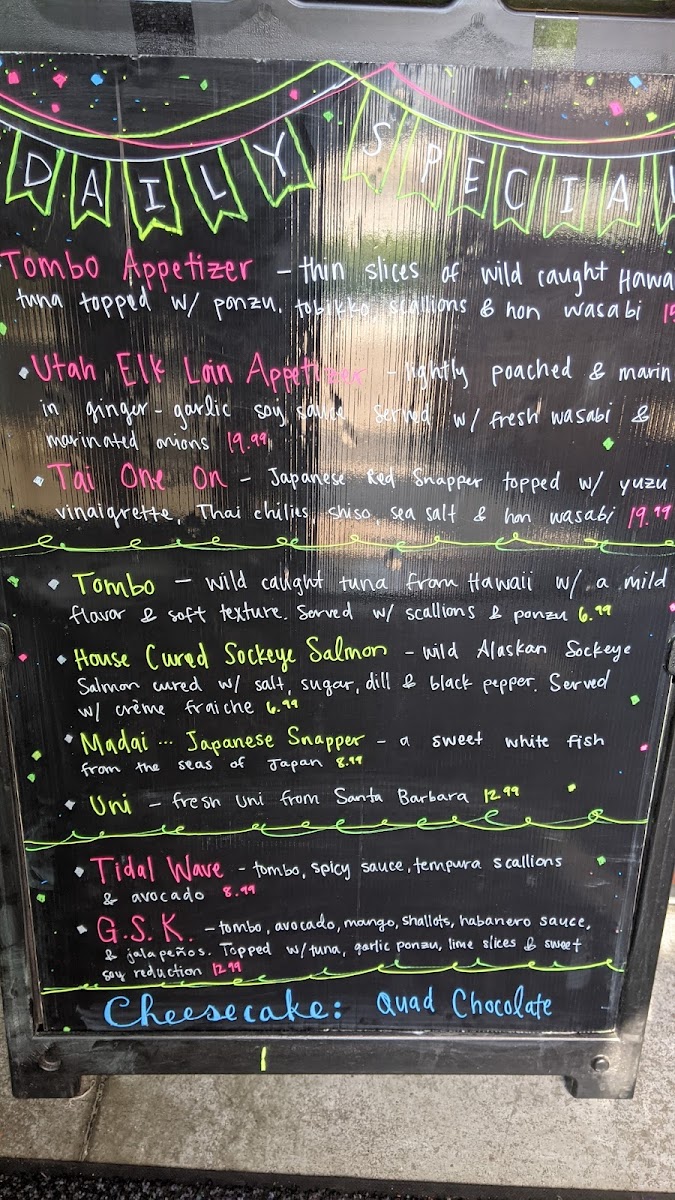 DAILY SPECIAL
Tombo Appetizer - thin slices of wild caught Hawa
tuna topped w/ ponzu, tobikko, scallions & hon wasabi
Utah Elk Loin Appetizer - lightly poached & marin
in ginger-garlic soy sauce. Served w/ fresh wasabi &
marinated onions 19.99
Tai One On - Japanese Red Snapper topped w/ yuzu
vinaigrette, Thai chilies, shiso, sea salt & hon wasabi 19.99
Tombo - wild caught tuna from Hawaii w/ a mild
flavor & soft texture. Served w/ scallions & ponzu 6.99
House Cured Sockeye Salmon - wild Alaskan Sockeye
Salmon cured w/ salt, sugar, dill & black pepper. Served
w/ crème fraiche 6.99
Madai ... Japanese Snapper - a sweet white fish
from the seas of Japan 8.99
Uni - fresh Uni from Santa Barbara 12.99
Tidal Wave - tombo, spicy sauce, tempura scallions
& avocado 8.99
G.S.K. - tombo, avocado, mango, shallots, habanero sauce,
& jalapeños. Topped w/ tuna, garlic ponzu, lime slices & sweet
soy reduction 12.99
Cheesecake: Quad Chocolate